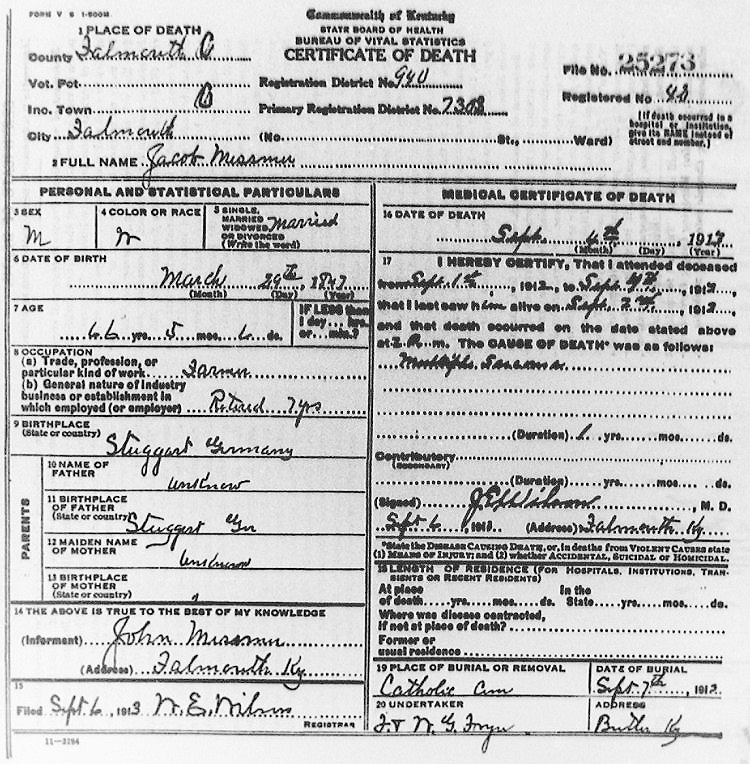 FORM V S 1-500M
Commonwealth of Kentucky
STATE BOARD OF HEALTH
BUREAU OF VITAL STATISTICS
CERTIFICATE OF DEATH
1 PLACE OF DEATH
County Falmouth
Vot. Pct
Inc. Town
City Falmouth
Registration District No. 940
Primary Registration District No. 7308
(No. St., Ward)
File No. 25273
Registered No. 48
(If death occurred in a hospital or institution, give its NAME instead of street and number.)
2 FULL NAME Jacob Messmer
PERSONAL AND STATISTICAL PARTICULARS
3 SEX
M
4 COLOR OR RACE
W
5 SINGLE, MARRIED WIDOWED OR DIVORCED (Write the word)
Married
6 DATE OF BIRTH
March 29th, 1847
(Month) (Day) (Year)
7 AGE
66 yrs. 5 mos. 6 ds.
IF LESS than 1 day, hrs. or min.?
8 OCCUPATION
(a) Trade, profession, or
particular kind of work Farmer
(b) General nature of industry
business or establishment in
which employed (or employer) Retired 7 yrs
9 BIRTHPLACE
(State or country)
Stuggart Germany
PARENTS
10 NAME OF FATHER
Unknow
11 BIRTHPLACE OF FATHER
(State or country)
Stuggart Ger
12 MAIDEN NAME OF MOTHER
Unknown
13 BIRTHPLACE OF MOTHER
(State or country)
14 THE ABOVE IS TRUE TO THE BEST OF MY KNOWLEDGE
(Informant) John Messmer
(Address) Falmouth Ky
15
Filed Sept 6, 1913 W. E. Wilson
REGISTRAR
11-3184
MEDICAL CERTIFICATE OF DEATH
16 DATE OF DEATH
Sept. 4th, 1913
(Month) (Day) (Year)
17 I HEREBY CERTIFY, That I attended deceased
from Sept. 1st, 1913, to Sept. 4th, 1913,
that I last saw him alive on Sept. 2nd, 1913,
and that death occurred on the date stated above
at 2 P. m. The CAUSE OF DEATH* was as follows:
Multiple Sarcoma
(Duration) 1 yrs. mos. ds.
Contributory
(SECONDARY)
(Duration) yrs. mos. ds.
(Signed) Wilson, M. D.
Sept 6, 1913. (Address) Falmouth Ky
*State the DISEASE CAUSING DEATH, or, in deaths from VIOLENT CAUSES state
(1) MEANS OF INJURY; and (2) whether ACCIDENTAL, SUICIDAL OR HOMICIDAL.
18 LENGTH OF RESIDENCE (FOR HOSPITALS, INSTITUTIONS, TRANSIENTS OR RECENT RESIDENTS)
At place of death yrs. mos. ds. In the State yrs. mos. ds.
Where was disease contracted,
if not at place of death?
Former or
usual residence
19 PLACE OF BURIAL OR REMOVAL
Catholic Cem
DATE OF BURIAL
Sept. 7th, 1913
20 UNDERTAKER
ADDRESS
Butler Ky